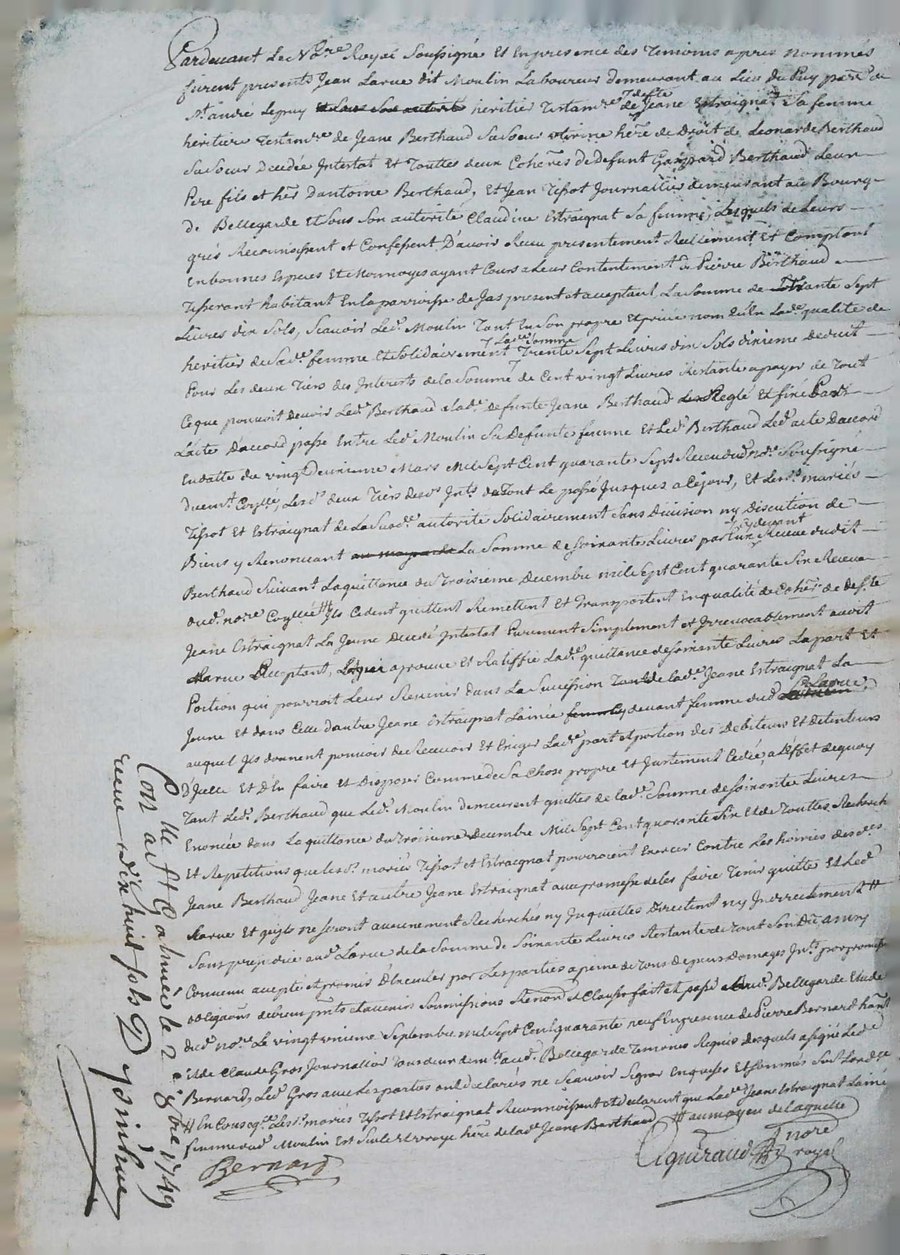 Pardevant Le No.re Royal Soussigné Et En presence des Temoins apres Nommés
furent presents Jean Larue dit Moulin Laboureur demeurant au Lieu du Puy par.e de
S.t andré Lepuy heritié Testam.re de Jeane Estraignat Sa femme
heritiere Testam.re de Jeane Berthaud Sa Soeur uterine her.e de Droit de Leonarde Berthaud
Sa Soeur Decedée Intestat Et Touttes deux Coher.es de Defunt Gaspard Berthaud Leur
Pere fils et her. Dantoine Berthaud, Et Jean Tissot Journallier demeurant au Bourg
de Bellegarde Et Sous Son autorité Claudine Estraignat Sa femme, Lesquels de Leurs
grés Reconnoissent et Confessent D'avoir Receu presentement Reellement Et Comptant
En bonnes Especes Et Monnoyes ayant Cours a Leur Contentement de Pierre Berthaud
Tisserant habitant En la parroisse de Jas present et acceptant, La Somme de Trante Sept
Livres dix Sols, Scavoir Led. Moulin Tant En Son propre Et privé nom qu'En Lad. qualité de
heritier de Sad. femme Et Solidairement Lad. Somme Trente Sept Livres dix Sols dixieme deduit
Pour Les deux Tiers des Interests de la Somme de Cent vingt Livres Restantes a payer de Tout
Ce que pouvoit devoir Led. Berthaud a Lad. defunte Jeane Berthaud Reglé Et fixé Par
L'acte D'accord passé Entre Led. Moulin Sa Defunte femme Et Led. Berthaud Led. acte D'accord
En datte du vingt Deuxieme Mars Mil Sept Cent quarante Sept Receu dud. no.re Soussigné
Duem.t Co.llé, Les d. deux Tiers des Int.s de Tout Le passé Jusques a Ce jour, Et Les d. mariés
Tissot et Estraignat de La Susd. autorité Solidairement Sans Division ny Discution de
Biens y Renoncant La Somme de Soixante Livres par eux cy devant Receue dudit
Berthaud Suivant La quittance du Troisieme Decembre mil Sept Cent quarante Six Receue
dud. no.re Co.llée Ils Cedent quittent Remettent Et Transportent En qualité de Coher.s de deff.te
Jeane Estraignat La Jeune Decedé Intestat Purement Simplement et Irrevocablement audit
Larue acceptant, Lequel aprouve et Ratiffie Lad. quittance de Soixante Livres La part Et
Portion qui pourroit Leur Revenir dans La Succession Tant de Lad. Jeane Estraignat La
Jeune Et dans Celle d'autre Jeane Estraignat L'ainée devant femme dud. Larue,
auquel Ils donnent pouvoir de Recevoir Et Exiger Lad. part et portion des Debiteurs Et Detenteurs
D'Icelle Et D'En faire Et Disposer Comme de Sa Chose propre et Justement Cedée, a L'Effet de quoy
Tant Led. Berthaud que Led. Moulin demeurent quittes de Lad. Somme de Soixante Livres
Enoncée dans La quittance du Troisieme Decembre Mil Sept Cent quarante Six Et de Touttes Recherches
Et Repetitions que Les d. mariés Tissot et Estraignat pourroient Exercer Contre Les hoiries des d.es
Jeane Berthaud Jeane Et autre Jeane Estraignat avec promesse de Les faire Tenir quitte Et Led.
Larue Et qu'ils ne Seront aucunement Recherchés ny Inquiettés Directem.t ny Indirectement #
Sans prejudice aud. Larue de la Somme de Soixante Livres Restante de Tout Son Du ainsy
Convenu accepté Et promis D'Executer par Les parties a peine de Tous Depens Domages Int.s par promesse
obligaons de biens pnts Et avenir Soumissions Renon. et Clauses fait et passé aud. Bellegarde Etude
dud. no.re Le vingt unieme Septembre mil Sept Cent quarante neuf En presence de Pierre Bernard
Et de Claude Gros Journallier Tous deux dem.ts aud. Bellegarde Temoins Requis desquels a Signé Led.
Bernard, Led. Gros avec Les parties ont declarés ne Scavoir Signer Enquis Et Sommés
# En Conseq.ce Les d. mariés Tissot Et Estraignat Reconnoissent Et declarent que Lad. Jeane Estraignat L'ainé
femme dud. Moulin Est Seule Et vraye her.e de Lad. Jeane Berthaud # au moyen de Laquelle
Bernard
Giguraud nore royal
C.lle Et à le 2 8bre 1749
receu dix huit sols